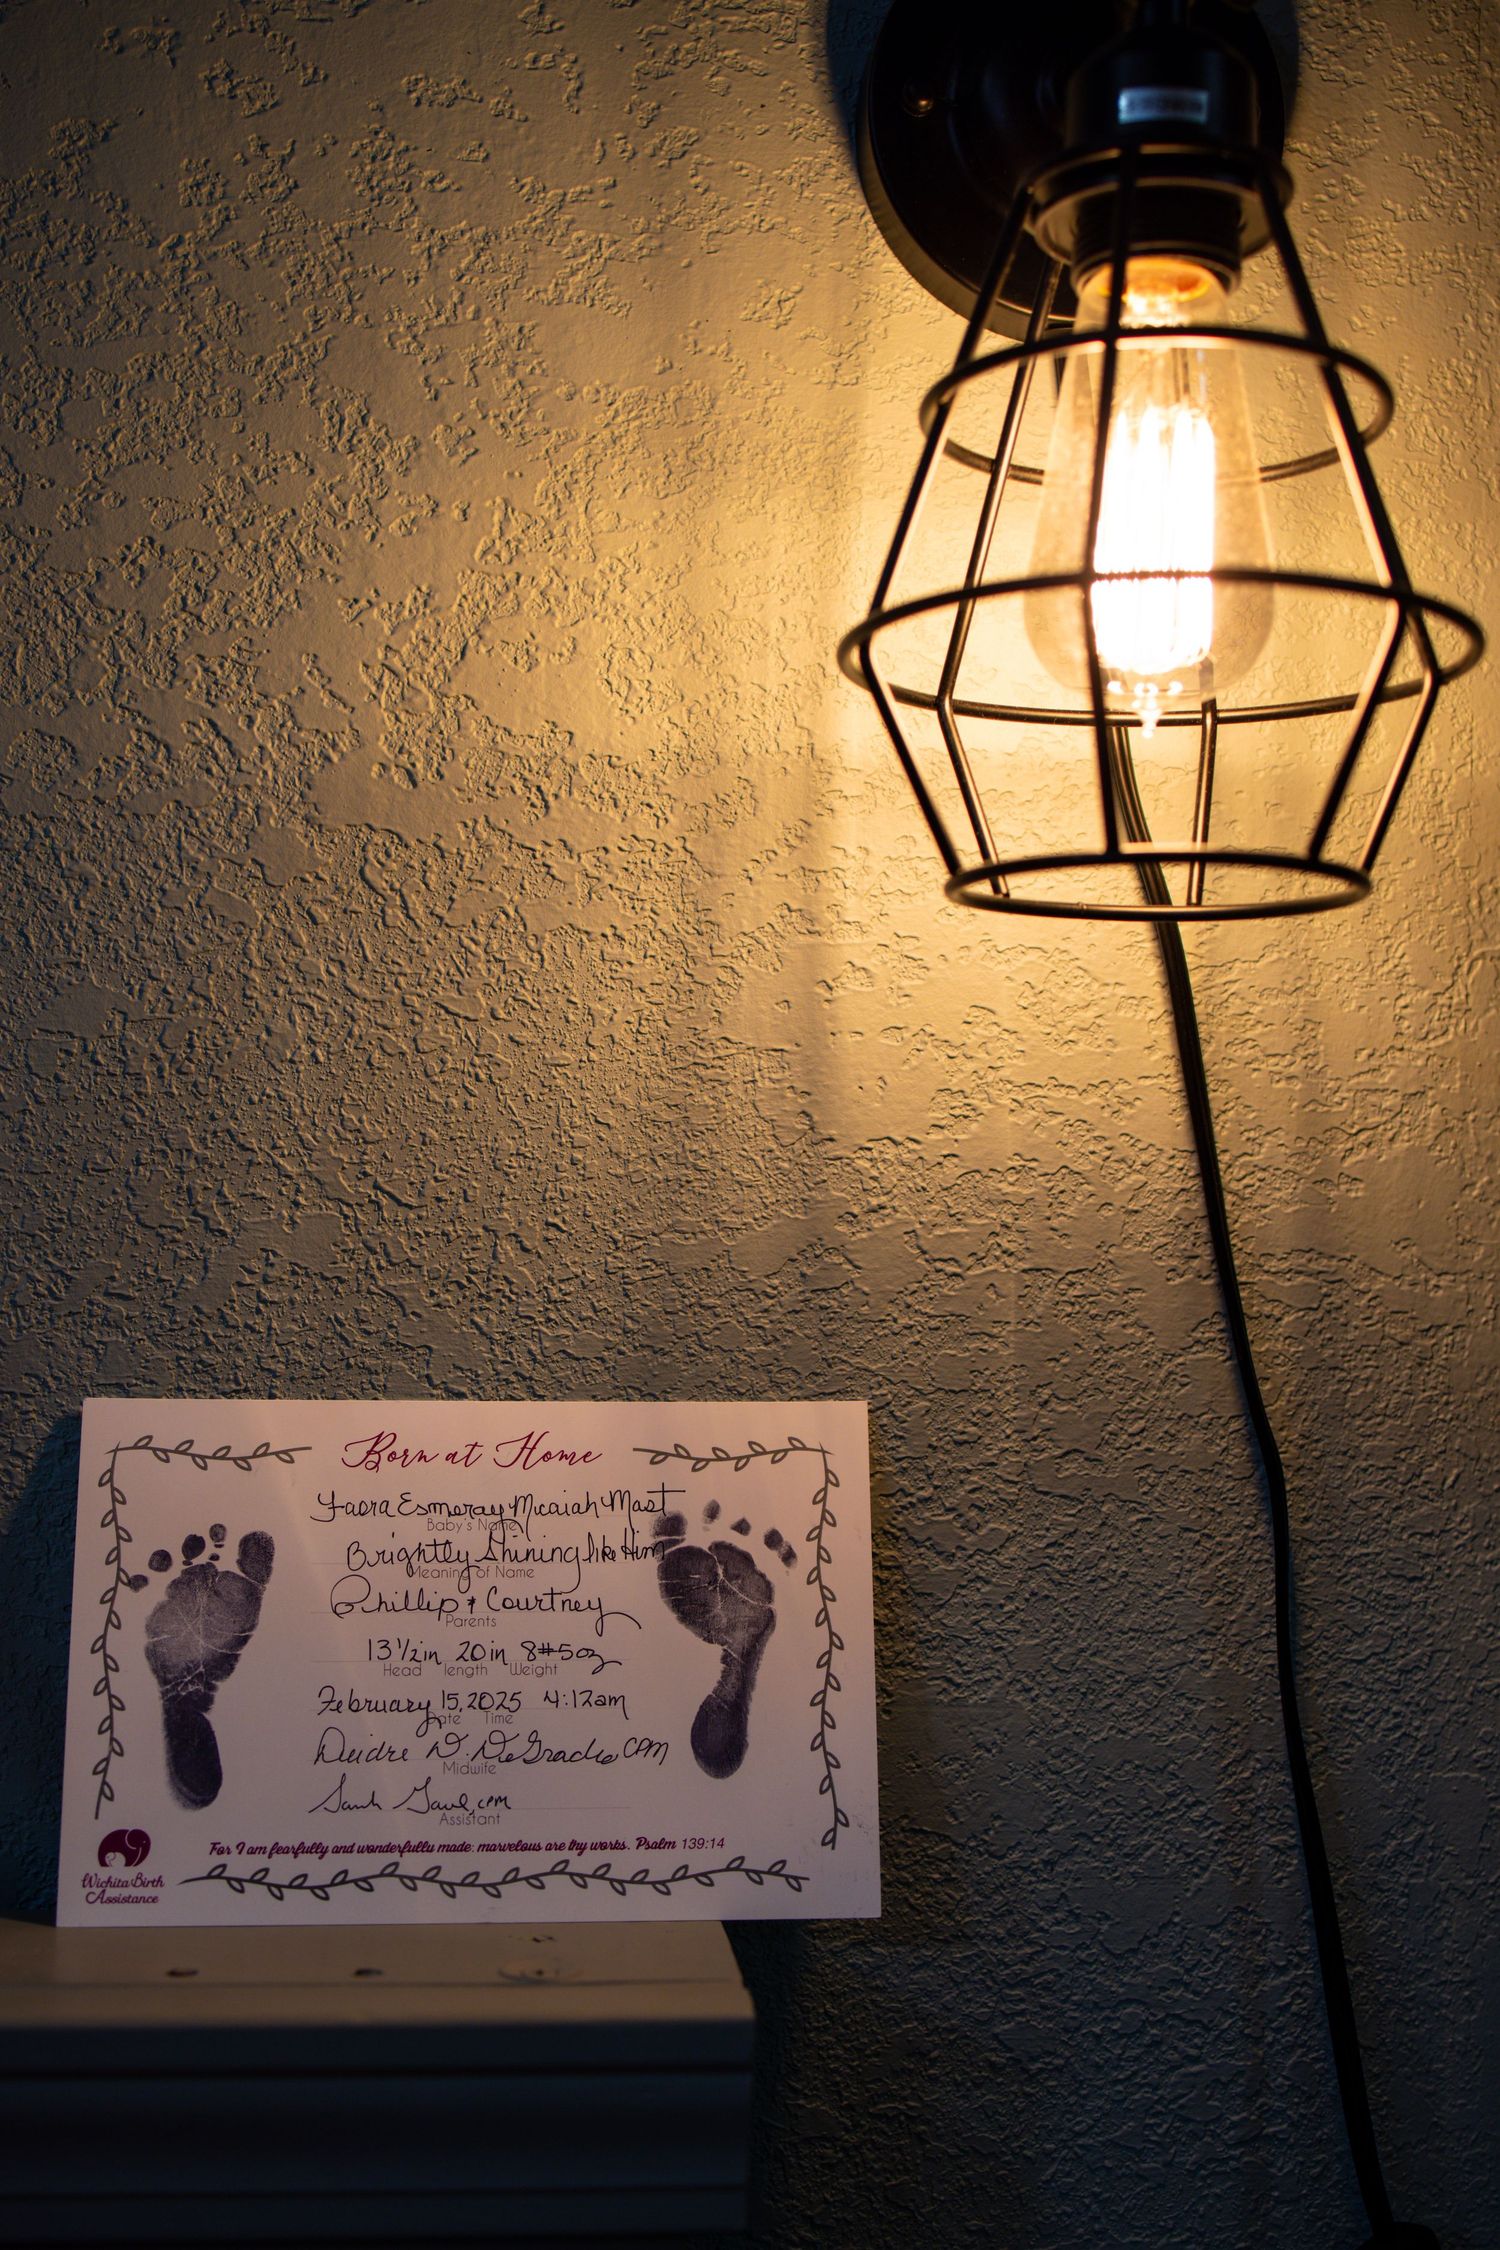 Born at Home
Faora Esmeray Micaiah Mast
Baby's Name
Brightly Shining like Him
Meaning of Name
Phillip & Courtney
Parents
13 1/2in 20in 8#5oz
Head length Weight
February 15, 2025 4:12am
Date Time
Deidre D. DeGrado CPM
Midwife
CPM
Assistant
For I am fearfully and wonderfully made: marvelous are thy works. Psalm 139:14
Wichita Birth
Assistance